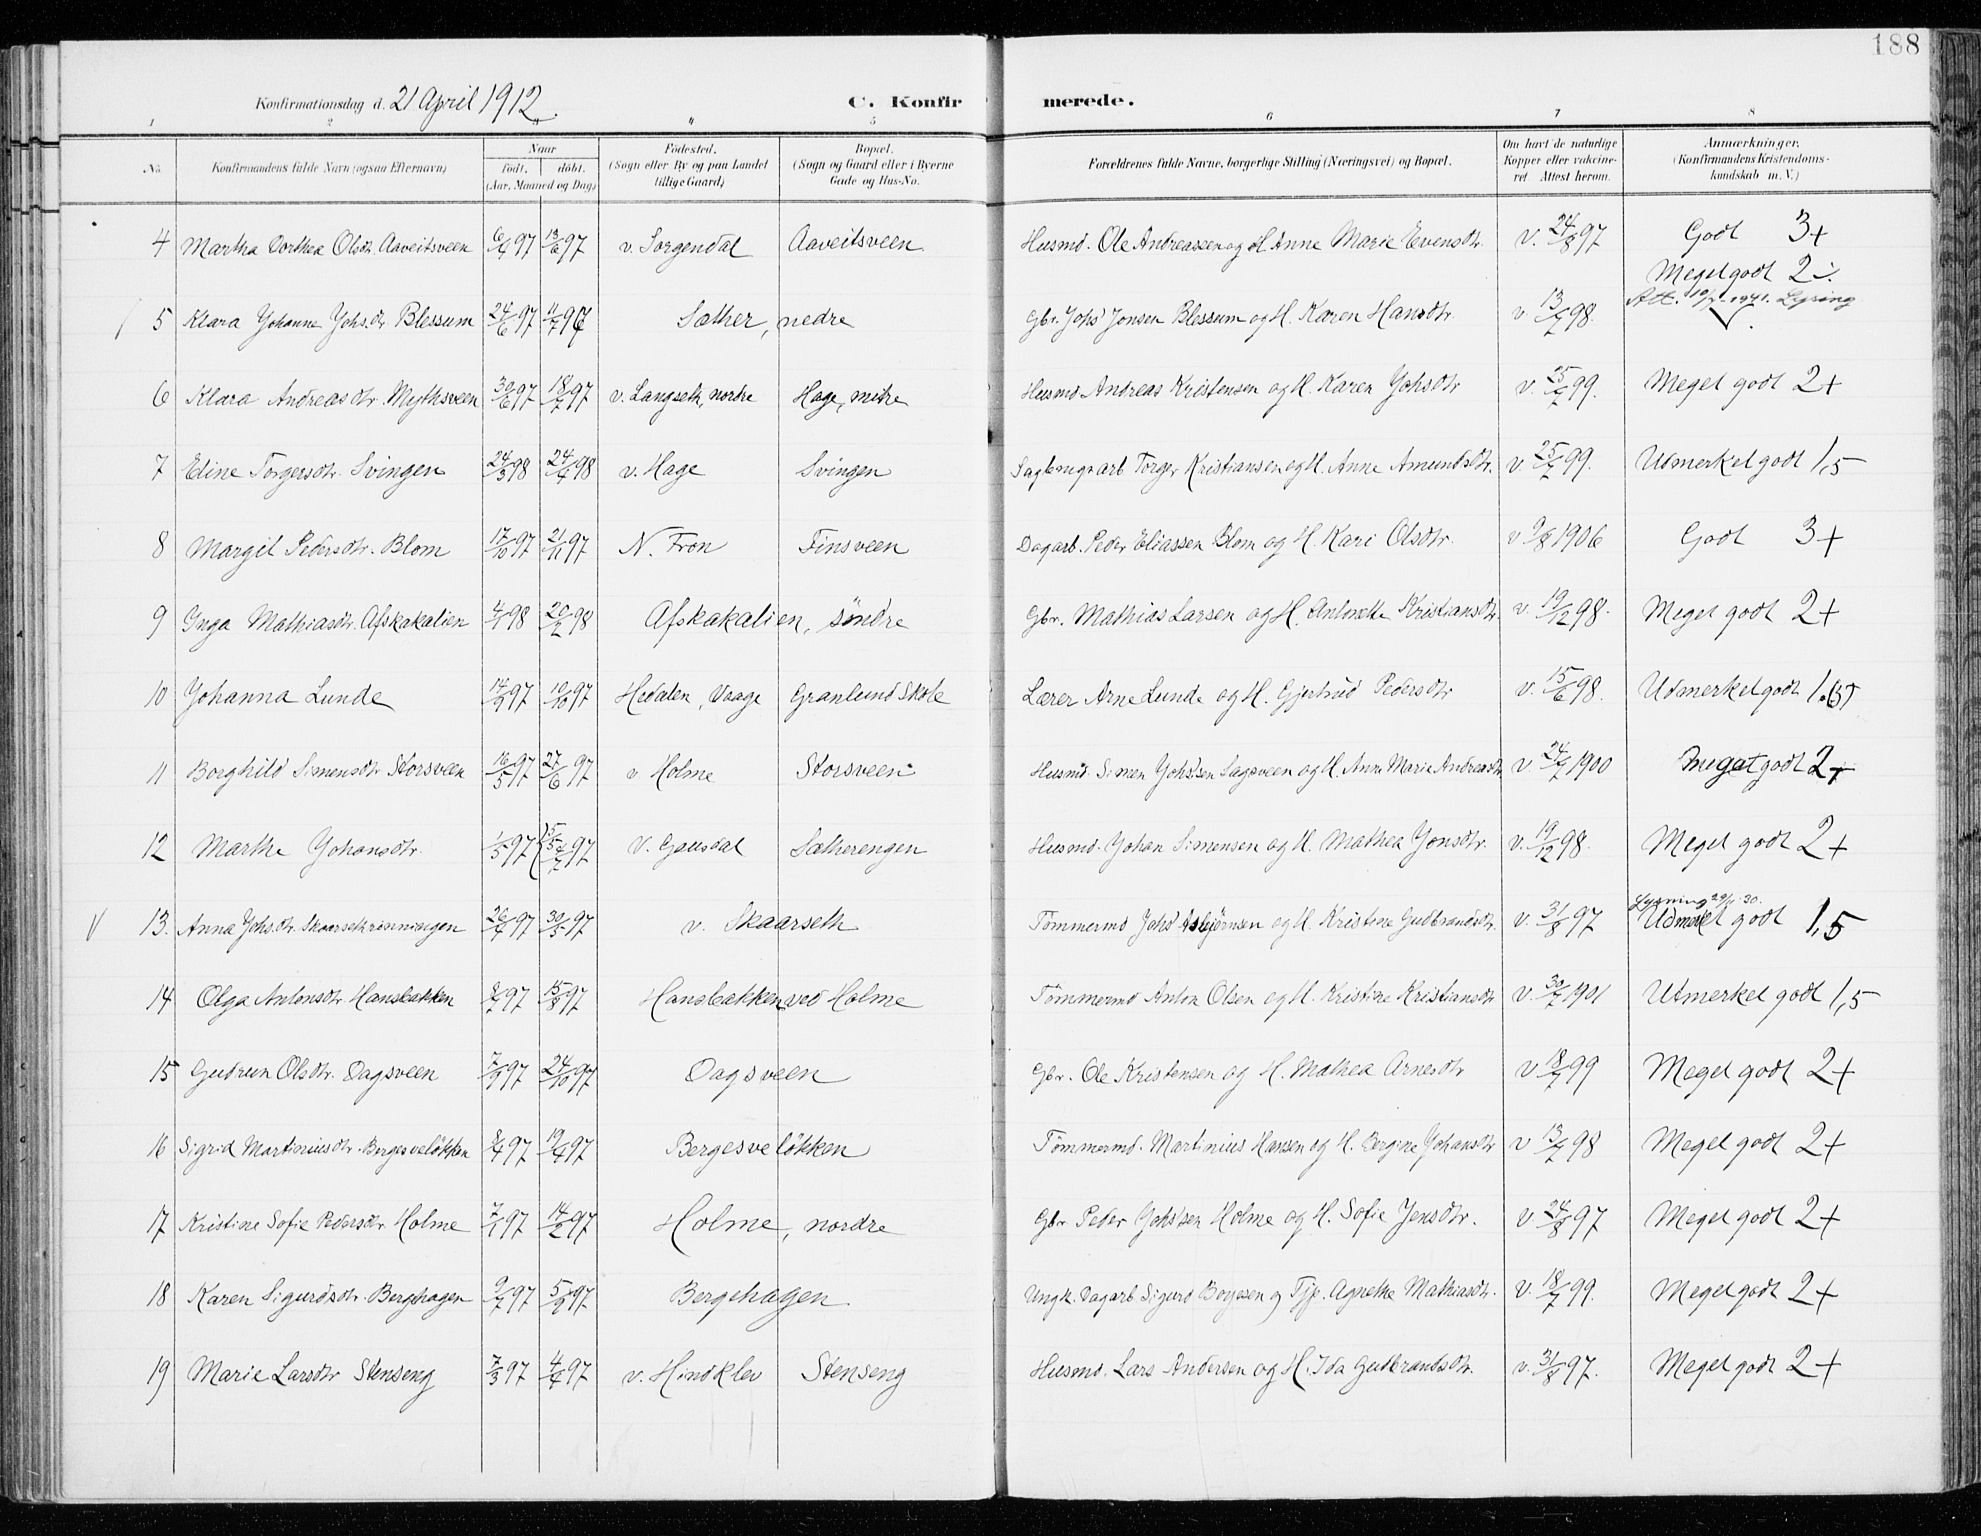 188
Konfirmationsdag d. 21 April 1912. C. Konfirmerede.
1 2 3 4 5 6 7 8
No. Konfirmandens fulde Navn (ogsaa Efternavn) Naar født. døbt. (Aar, Maaned og Dag) Fødested. (Sogn eller By og paa Landet tillige Gaard) Bopæl. (Sogn og Gaard eller i Byerne Gade og Hus-No. Forældrenes fulde Navne, borgerlige Stilling (Næringsvei) og Bopæl. Om havt de naturlige Kopper eller vakcineret Attest herom. Anmærkninger. (Konfirmandens Kristendomskundskab m. V.)
4 Martha Dorthea Olsdtr. Aaveitsveen 6/4 97 13/6 97 v. Sorgendal Aaveitsveen Husmd. Ole Andreassen og H. Anne Marie Evensdtr. v. 24/8 97 Godt 3+
5 Klara Johanne Johs.dtr Blessum 24/6 97 11/7 97 Sæther, nedre Gbr. Johs' Jonsen Blessum og H. Karen Hansdtr. v. 13/7 98. Meget godt 2÷ Att. 1941. Lysning
6 Klara Andreasdtr. Mythsveen 30/6 97 18/7 97 v. Langseth, nordre Hage, mitre Husmd Andreas Kristensen og H. Karen Johsdtr v. 25/7 99. Meget godt 2+
7 Edine Torgersdtr. Svingen 24/3 98 24/4 98 v. Hage Svingen Sagbrugsarb Torger Kristiansen og H. Anne Amundsdtr. v. 25/7 99. Utmerket godt 1,5
8 Margit Pedersdtr. Blom 17/10 97 21/11 97 N. Fron Finsveen Dagarb. Peder Eliassen Blom og H. Kari Olsdtr. v 9/8 1906 Godt 3+
9 Inga Mathiasdtr. Afskakalien 4/1 98 20/2 98 Afskakalien, söndre Gbr. Mathias Larsen og H. Antonette Kristiansdtr. v. 19/12 98. Meget godt 2+
10 Johanna Lunde 14/9 97 10/10 97 Hedalen, Vaage Granlund Skole Lærer Arne Lunde og H. Gjertrud Pedersdtr v. 15/6 98. Utmerket godt
11 Borghild Simensdtr Storsveen 16/5 97 27/6 97 v Holme Storsveen Husmd. Simen Johs'sen Sagsveen og H. Anne Marie Andreasdtr v. 24/7 1900 meget godt 2+
12 Marthe Johansdtr. 1/5 97 97 V. Gausdal Sætherengen Husmd. Johan Simensen og H. Mathea Jonsdtr. v. 19/12 98. Meget godt 2+
13. Anna Johs.dtr. Skaarsethrönningen 26/4 97 30/5 97 v. Skaarseth Tömmermd Johs' Asbjörnsen og H. Kristine Gudbrandsdtr. v. 31/8 97 Lysning 20. Udmerket godt 1,5
14 Olga Antonsdtr. Hansbakken 8/7 97 15/8 97 Hansbakken ved Holme Tömmermd Anton Olsen og H. Kristine Kristiansdtr v. 30/7 1901 Utmerket godt 1,5
15 Gudrun Olsdtr. Dagsveen 7/9 97 24/10 97 Dagsveen Gbr. Ole Kristensen og H. Mathea Arnesdtr v 18/7 99 Meget godt 2+
16 Sigrid Martiniusdtr. Bergesveløkken 97 19/4 97 Bergesveløkken Tömmermd. Martinius Hansen og H. Bergine Johansdtr v 13/7 98 Meget godt 2+
17 Kristine Sofie Pedersdtr Holme 7/1 97 14/2 97 Holme, nordre Gbr Peder Johs'sen Holme og H. Sofie Jensdtr. v 24/8 97 Meget godt 2+
18 Karen Sigurdsdtr. Bergehagen 9/7 97 5/9 97 Bergehagen Ungk. Dagarb Sigurd Boyesen og Tjp. Agnethe Mathiasdtr. v. 18/7 99. Meget godt 2+
19 Marie Larsdtr Stenseng 7/3 97 4/4 97 v. Hindklev Stenseng Husmd. Lars Andersen og H. Ida Gudbrandsdtr. v. 31/8 97. Meget godt 2+